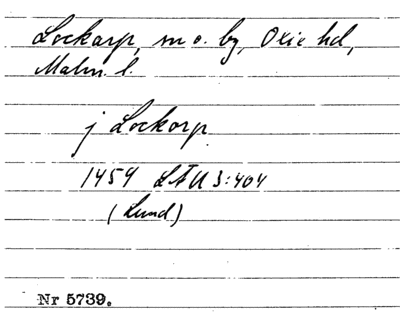 Lockarp, sn o. by, Oxie hd,
Malm. l.
j Lockorp
1459 LÄU 3:404
(Lund)
Nr 5739.